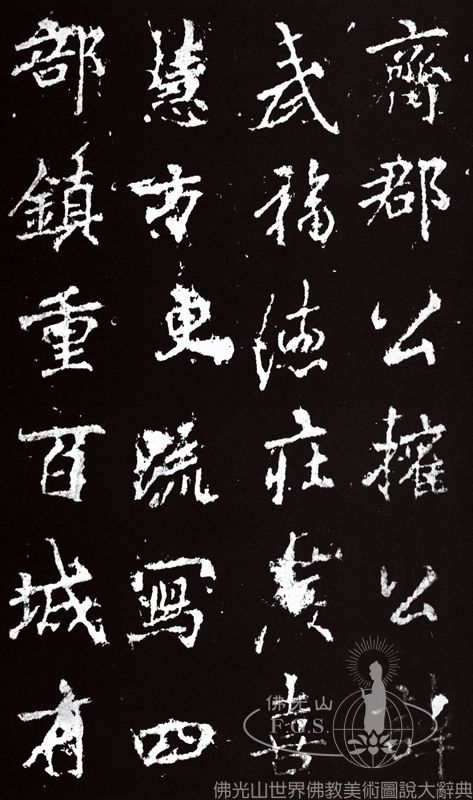 齊郡公權公諱
武福德莊嚴喜
慧方更疏寫四
部鎮重百城有
佛光山
F.G.S.
佛光山世界佛教美術圖說大辭典